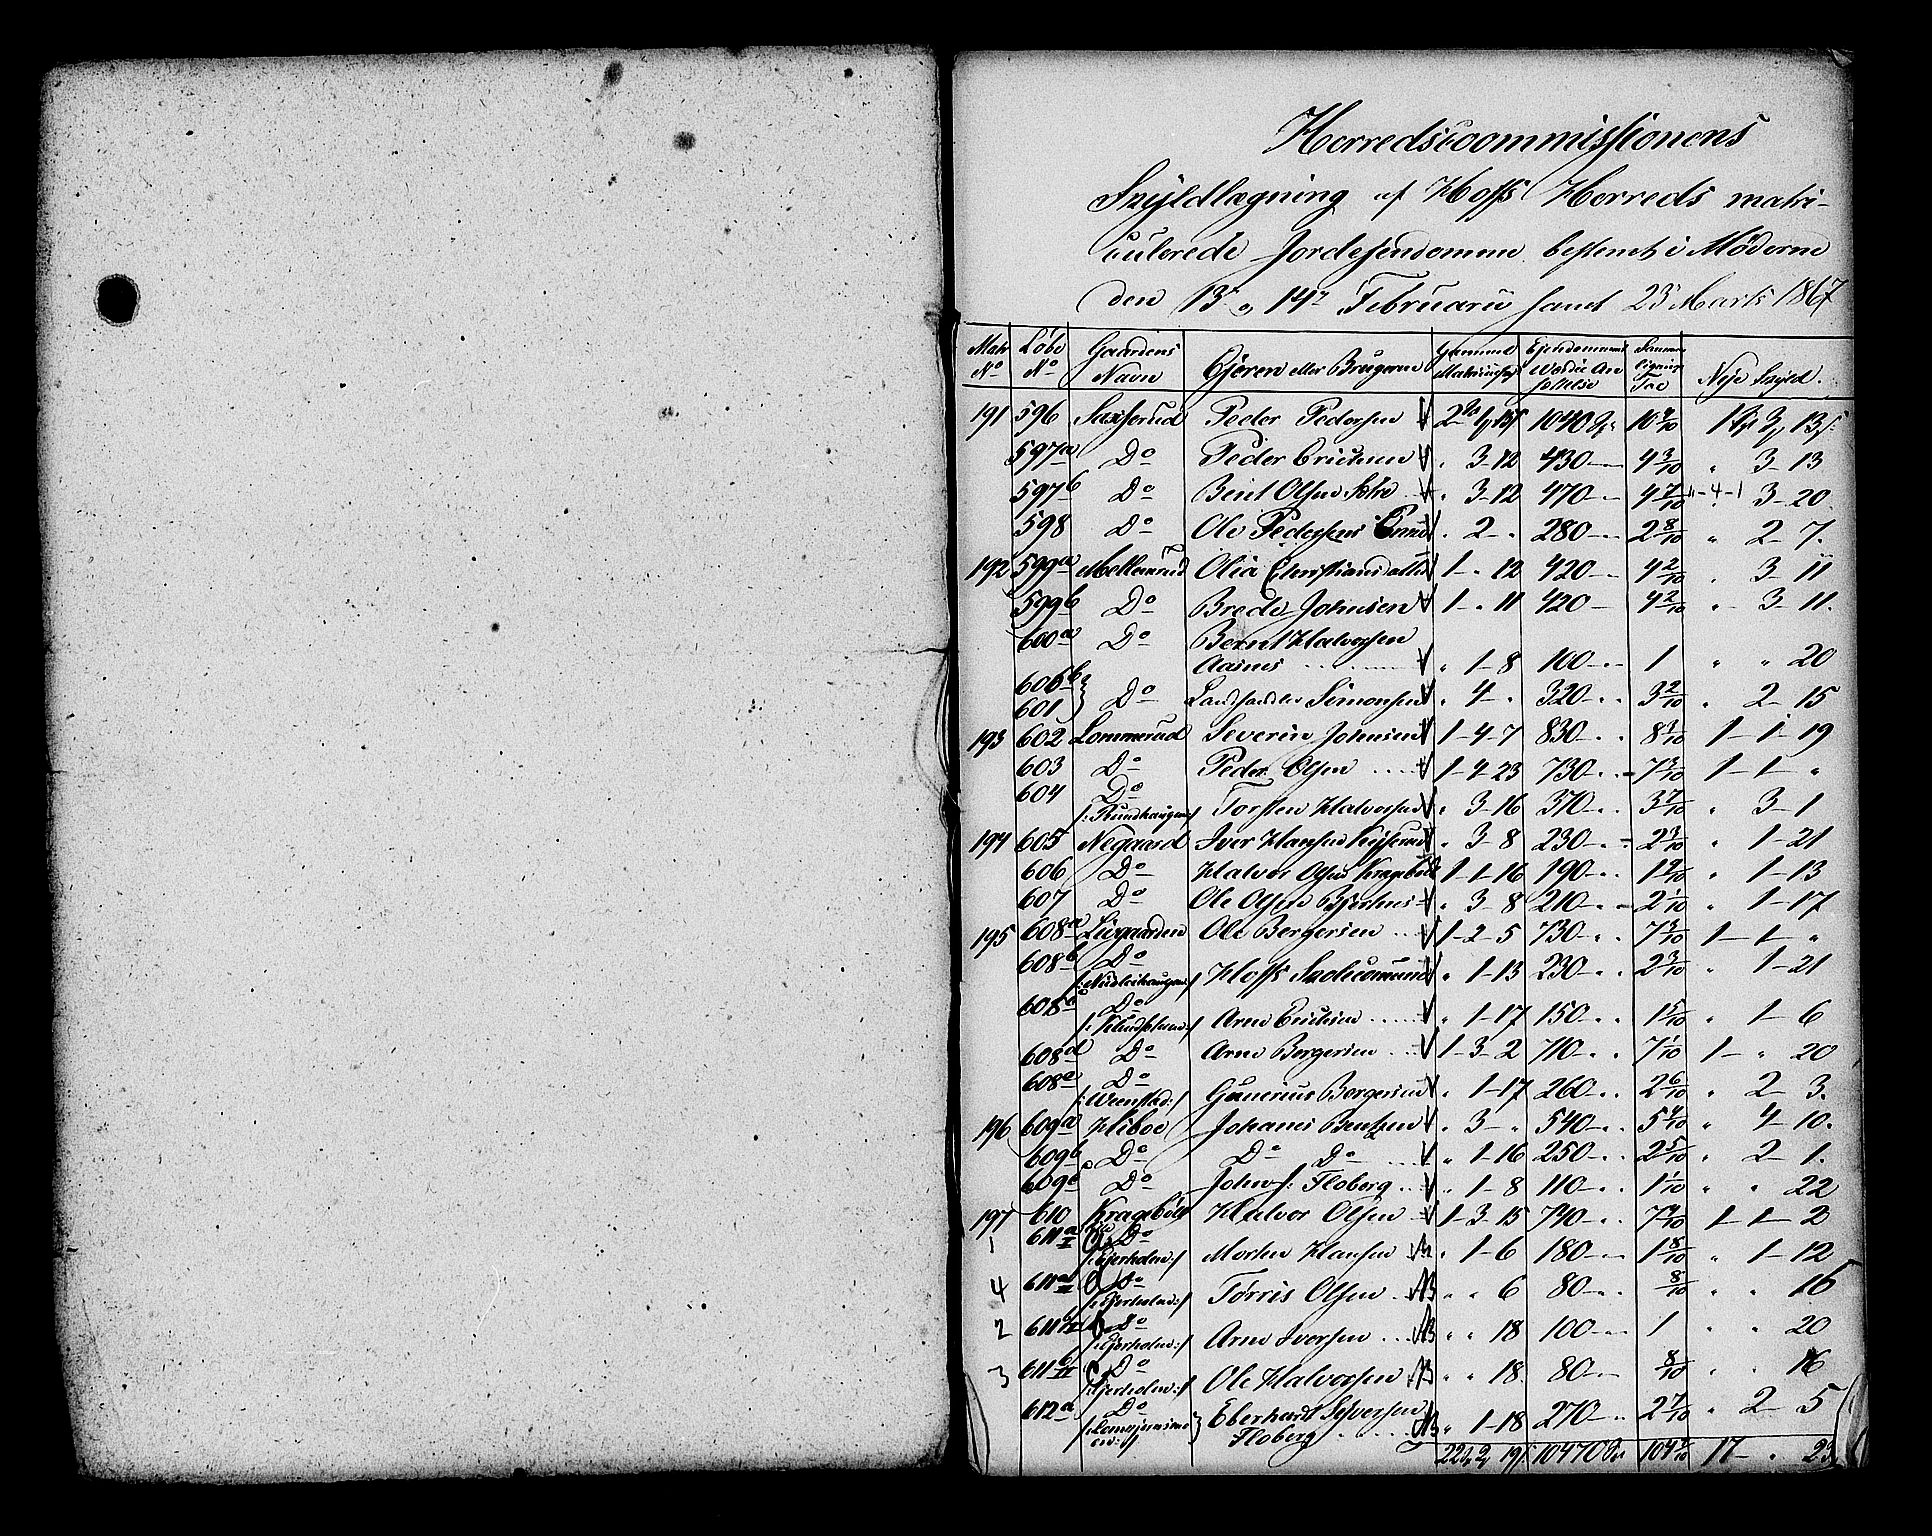 Herredscommissionens
Skyldlægning af Hoffs Herreds matri-
culerede Jordejendomme bestemt i Møderne
den 13de, 14de Februarii samt 23 Marts 1867
Matr No | Løbe No | Gaardens Navn | Ejeren eller Brugeren | Gammel Matriculs | Ejendommens Værdie | Sammenligning Tal | Nye Skyld.
191 596 Peder Pedersen 1040 10 4/10 1 3 13
597a Do Peder Erichsen 3-12 430 4 3/10 " 3-13
597b Do Bent Olsen 3-12 470 4 7/10 "-4-1 3-20
598 Do Ole Pedersen 2-" 280 2 8/10 " 2-7.
192 599a Mellemrud Olia Christiansdatter 1-"12 420 4 2/10 " 3-11
599b Do Brede Johnsen 1-"11 420 4 2/10 " 3-11.
600a Do Bernt Halvorsen
Aasnes " 1-8 100 1 " " 20
600b
601 } Do Landhandler Simonsen " 4-" 320 3 2/10 " 2-15
193 602 Lommerud Severin Johnsen 1-4-7 830 8 3/10 1-1-19
603 Do Peder Olsen 1-4-23 730 7 3/10 1-1-"
604 Do
Torsten Halvorsen " 3-16 370 3 7/10 " 3-1
194 605 Negaard Iver Hansen " 3-8 230 2 3/10 " 1-21
606 Do Halvor Olsen Kragebøl 1-1-16 190 1 9/10 " 1-13
607 Do Ole Olsen " 3-8 210 2 1/10 " 1-17
195 608a Ole Bergersen 1-2-5 730 7 3/10 1-1-"
608b Do
Hoffs Skolecommune " 1-13 230 2 3/10 " 1-21
608c Do
Arne Erichsen " 1-17 150 1 5/10 " 1-6
608d Do Arne Bergersen 1-3-2 710 7 1/10 1-"20
608e Do
Gunerius Bergersen " 1-17 260 2 6/10 " 2-3.
196 609a Johanes Bentsen " 3-" 540 5 4/10 " 4-10.
609b Do Do Do " 1-16 250 2 5/10 " 2-1.
609c Do John Floberg " 1-8 110 1 1/10 " " 22
197 610 Kragebøl Halvor Olsen 1-3-15 740 7 4/10 1-1-2
1 611a I Do
/:Ejerholm:/ Morten Hansen " 1-6 180 1 8/10 " 1-12
4 611a II Do
/:Ejerholm:/ Tørris Olsen " " 6 80 8/10 " " 16
2 611 Do
/:Ejerholm:/ Arne Iversen " " 18 100 1 " " 20
3 611 Do
/:Ejerholm:/ Ole Halvorsen " " 18. 80 8/10 " " 16
612a Do
Eberhard Syversen
Floberg " 1-18 270 2 7/10 " 2-5
22 2 19 10470 104 7/10 17-"23